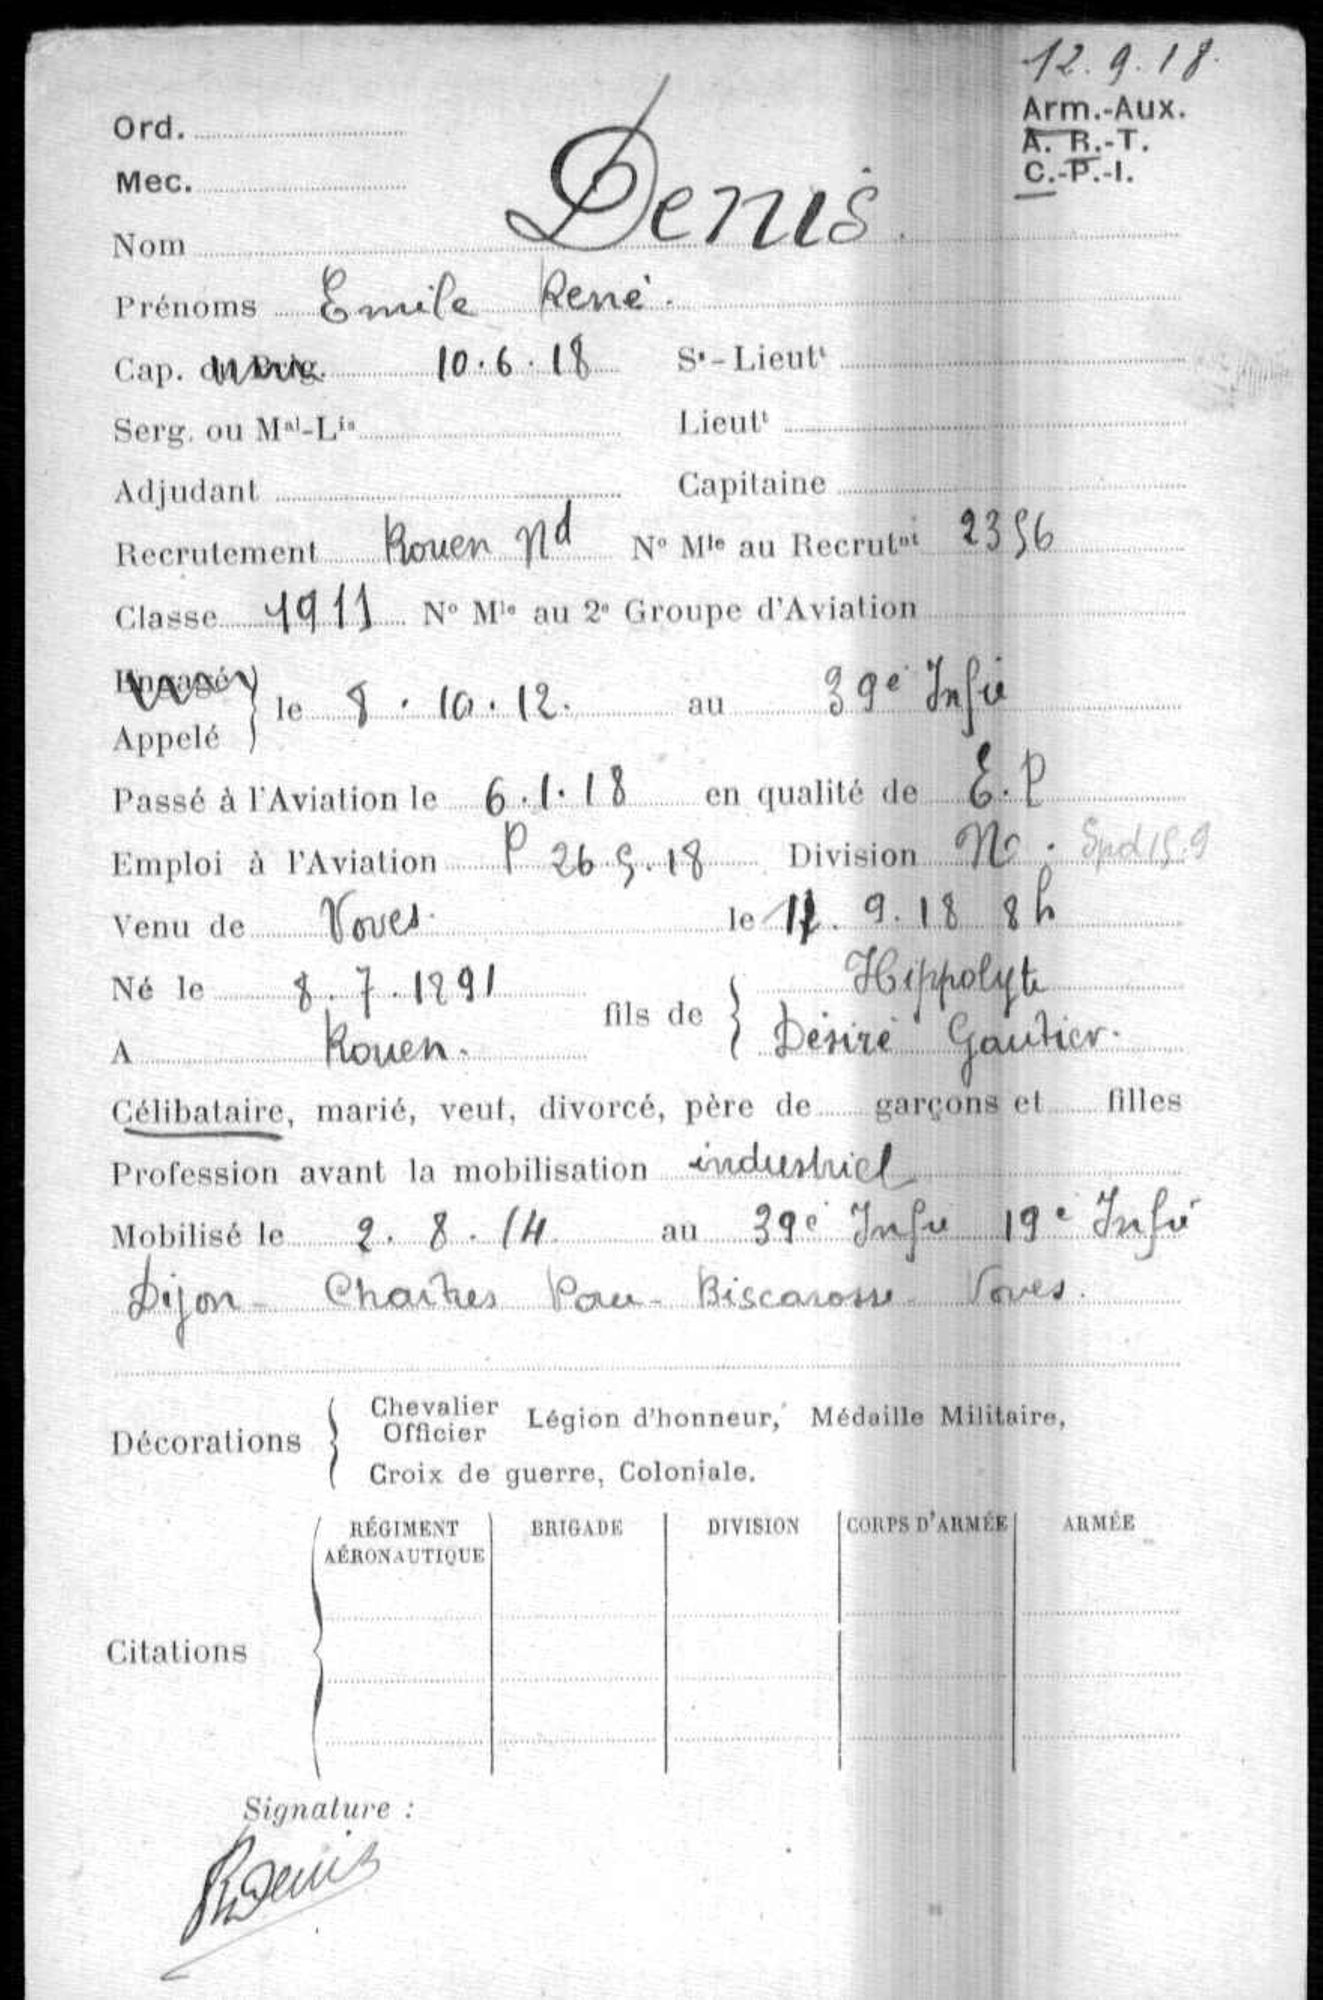 12.9.18.
Arm.-Aux.
Ord.
A. R.-T.
Mec.
C.-P.-I.
Nom Denis.
Prénoms Emile René.
Cap. ou Brig. 10.6.18 Sˢ-Lieutᵗ
Serg. ou Mᵃˡ-Lⁱˢ Lieutᵗ
Adjudant Capitaine
Recrutement Rouen Nd Nº Mˡᵉ au Recrutⁿᵗ 2356
Classe 1911 Nº Mˡᵉ au 2ᵉ Groupe d'Aviation
Engagé
le 8.10.12. au 39ᵉ Infie
Appelé
Passé à l'Aviation le 6.1.18 en qualité de E.P
Emploi à l'Aviation P 26 5.18 Division Spd 15.9
Venu de Voves. le 9.18 8h
Né le 8.7.1891 Hippolyte
fils de
A Rouen. Désiré Gautier.
Célibataire, marié, veuf, divorcé, père de garçons et filles
Profession avant la mobilisation industriel
Mobilisé le 2.8.14 au 39ᵉ Infie 19ᵉ Infie
Dijon - Chartres Pau - Biscarosse - Voves.
Chevalier
Officier
Légion d'honneur, Médaille Militaire,
Décorations
Croix de guerre, Coloniale.
RÉGIMENT AÉRONAUTIQUE BRIGADE DIVISION CORPS D'ARMÉE ARMÉE
Citations
Signature :
RDenis